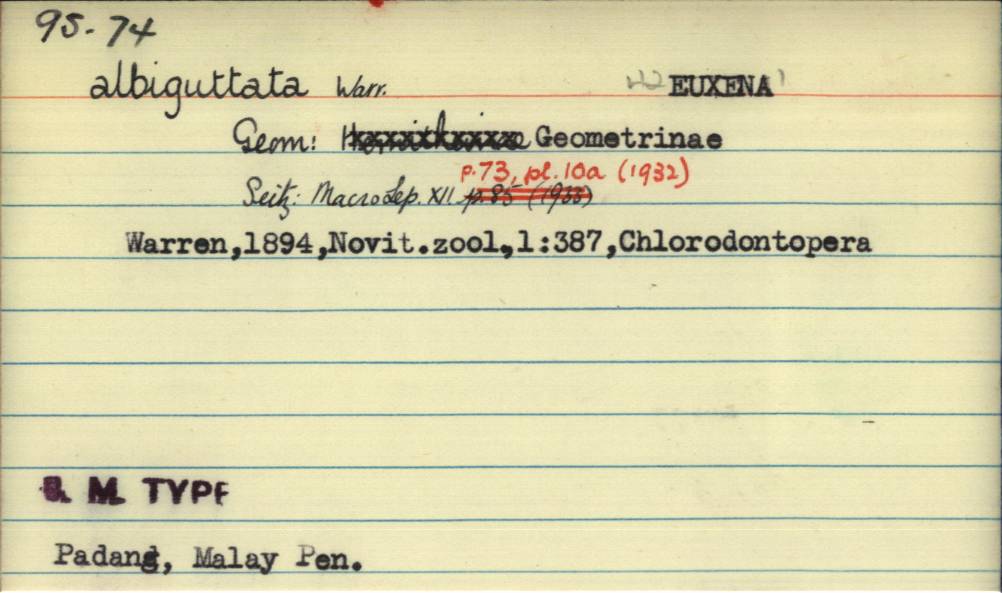 95-74
albiguttata Warr. EUXENA
Geom: Geometrinae
p.73, pl.10a (1932)
Seitz: MacroLep. XII p.85 (1933)
Warren,1894,Novit.zool.,1:387,Chlorodontopera
B. M. TYPE
Padang, Malay Pen.